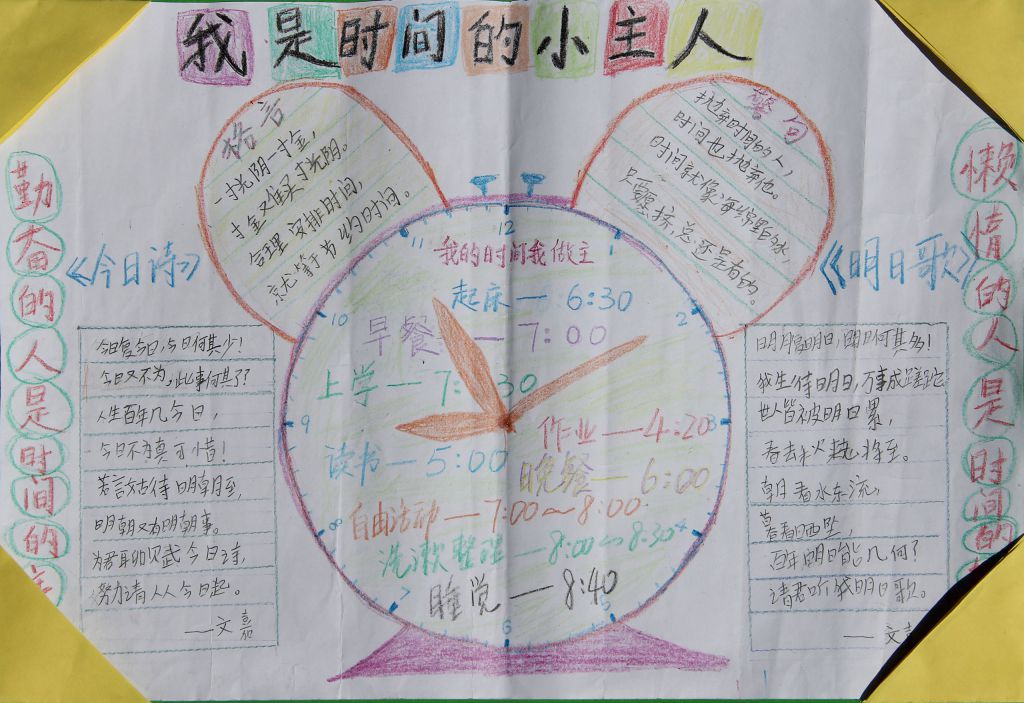 我是时间的小主人
格言
一寸光阴一寸金,
寸金难买寸光阴。
合理安排时间,
就等于节约时间。
警句
抛弃时间的人,
时间也抛弃他。
时间就像海绵里的水,
只要挤,总还是有的。
勤奋的人是时间的主
懒惰的人是时间的
《今日诗》
今日复今日,今日何其少!
今日又不为,此事何其了?
人生百年几今日,
今日不为真可惜!
若言姑待明朝至,
明朝又有明朝事。
为君聊赋今日诗,
努力请从今日起。
——文嘉
12
11
10
9
8
7
6
5
4
3
2
我的时间我做主
起床— 6:30
早餐— 7:00
上学— 7:30
作业—4:20
读书—5:00
晚餐—6:00
自由活动—7:00~8:00
洗漱整理—8:00~8:30
睡觉—8:40
《明日歌》
明日复明日,明日何其多!
我生待明日,万事成蹉跎。
世人皆被明日累,
春去秋
将至。
朝看水东流,
暮看日西坠,
百年明日能几何?
请君听我明日歌。
——文嘉